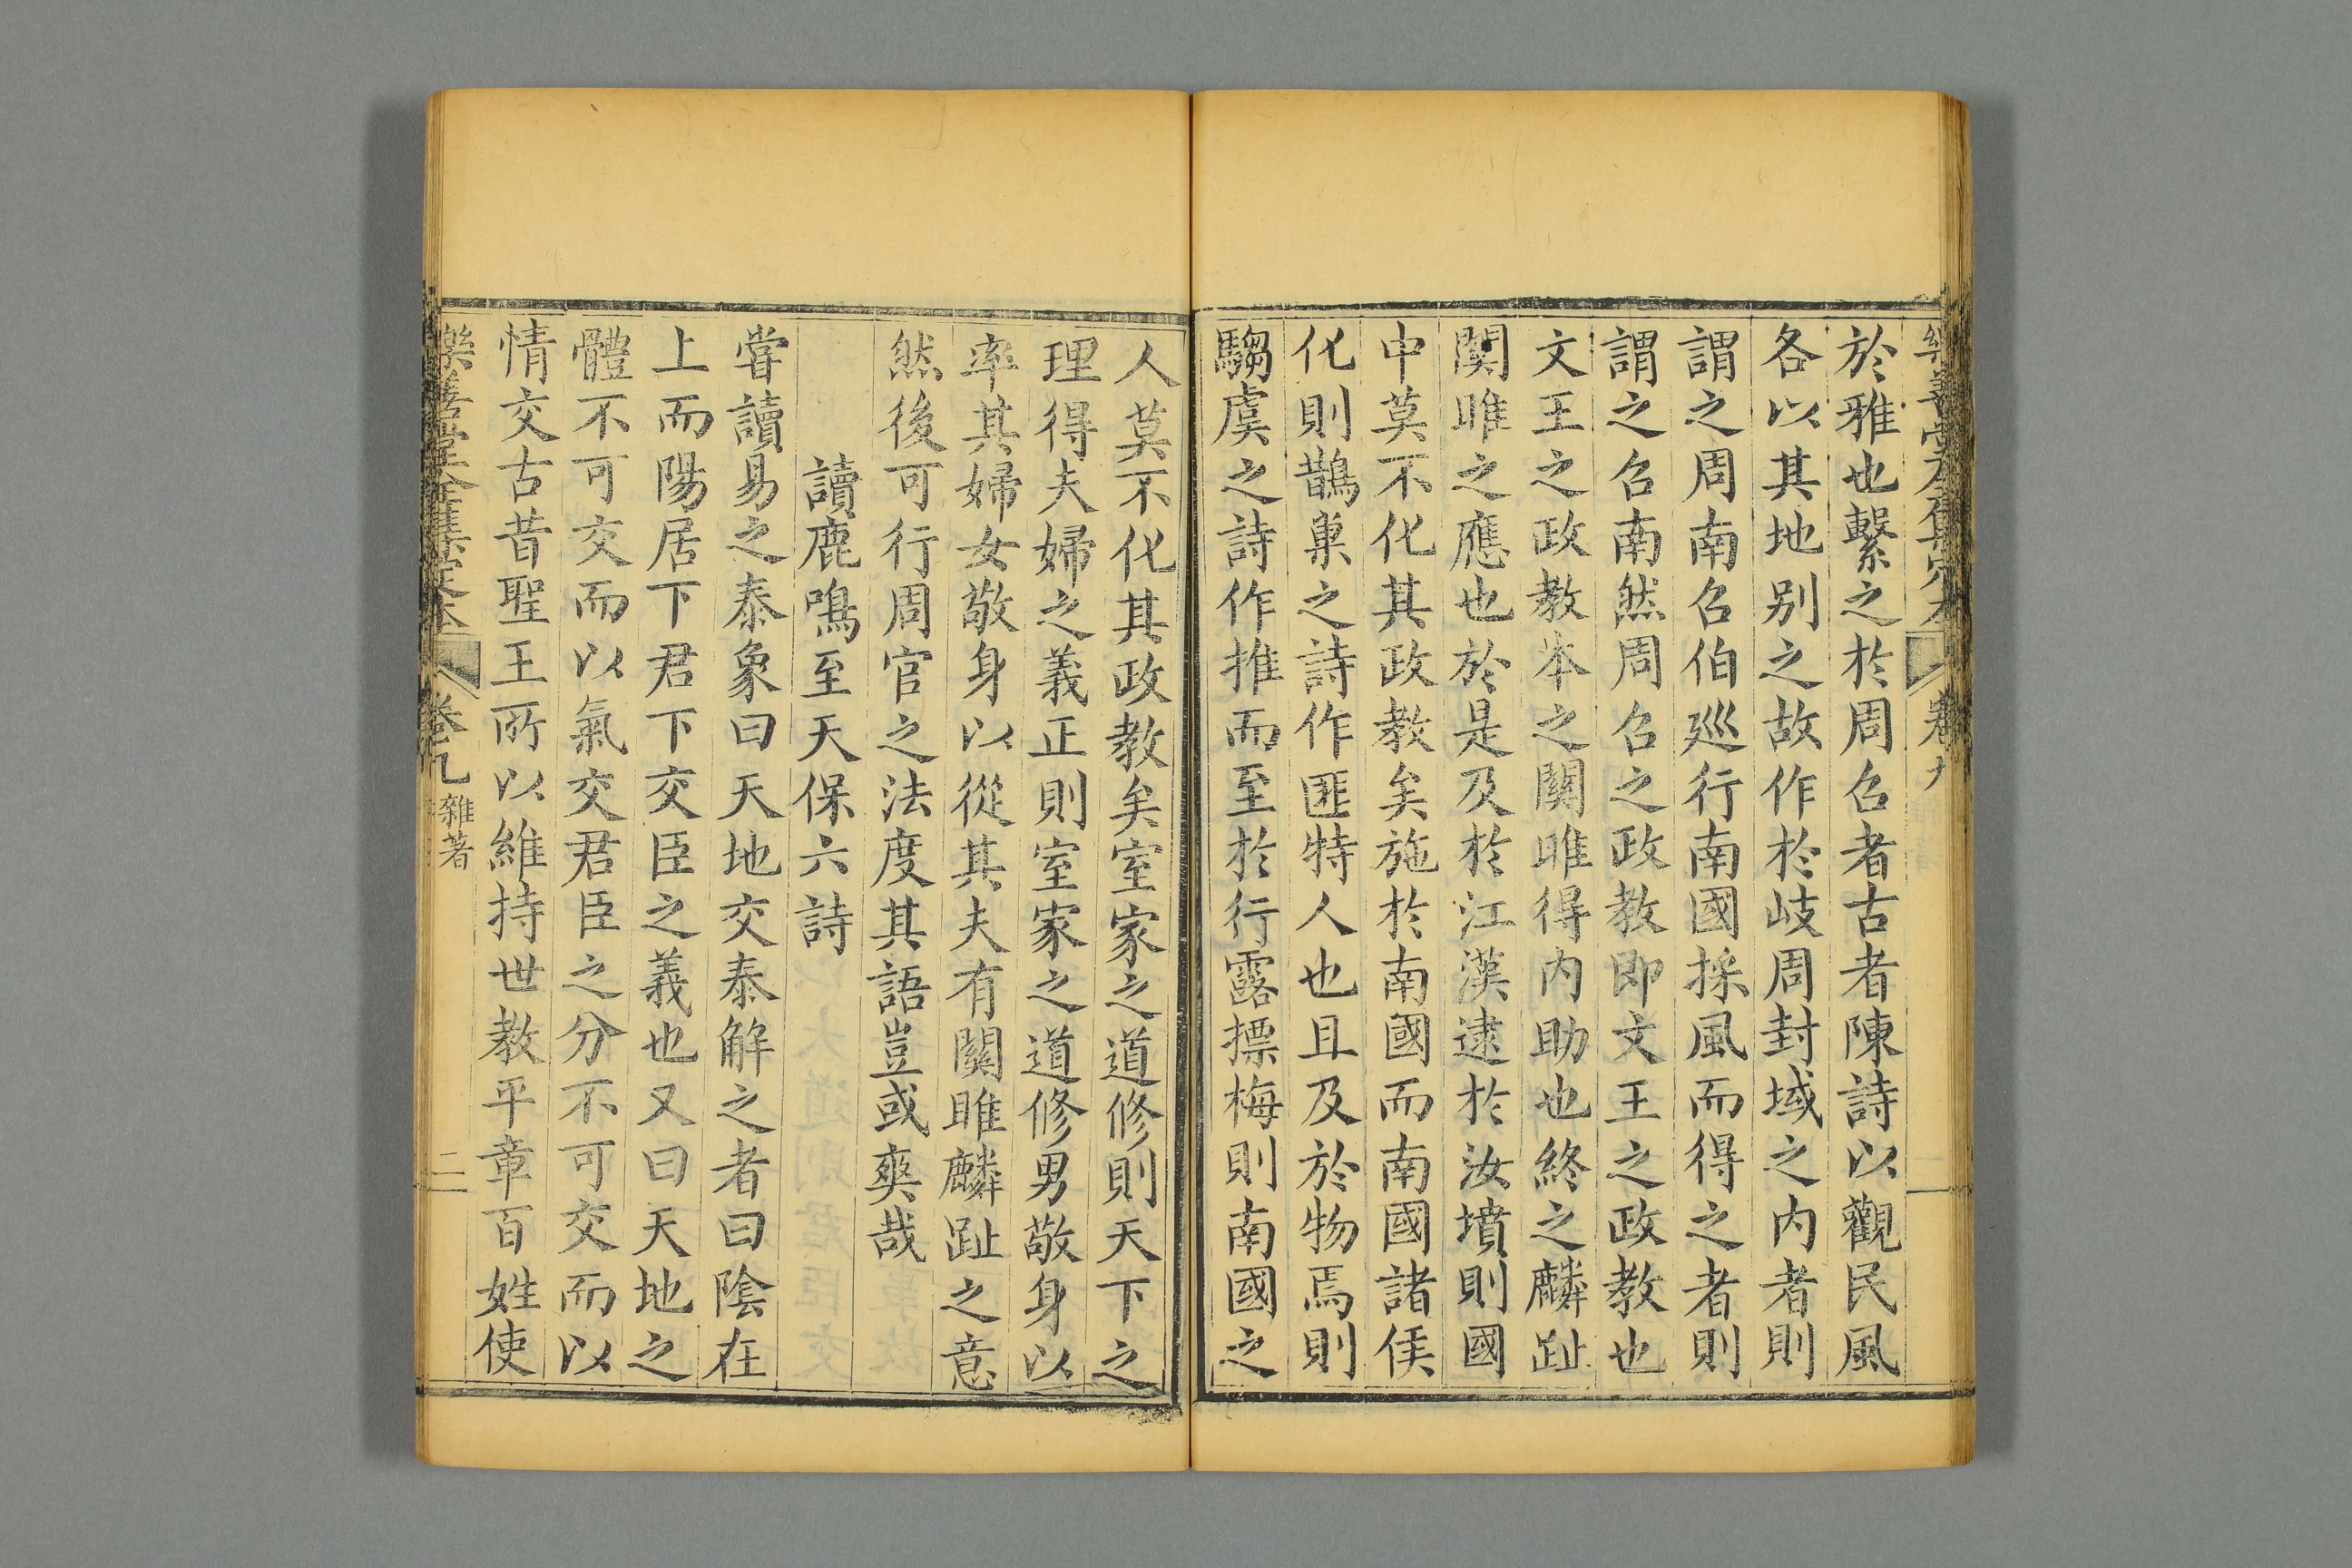 於雅也繫之於周召者古者陳詩以觀民風
各以其地别之故作於岐周封域之内者則
謂之周南召伯廵行南國採風而得之者則
謂之召南然周召之政教即文王之政教也
文王之政教本之關雎得内助也終之麟趾
關雎之應也於是及於江漢逮於汝墳則國
中莫不化其政教矣施於南國而南國諸侯
化則鵲巢之詩作匪特人也且及於物焉則
騶虞之詩作推而至於行露摽梅則南國之
人莫不化其政教矣室家之道修則天下之
理得夫婦之義正則室家之道修男敬身以
率其婦女敬身以從其夫有關雎麟趾之意
然後可行周官之法度其語豈或爽哉
讀鹿鳴至天保六詩
嘗讀易之泰象曰天地交泰解之者曰陰在
上而陽居下君下交臣之義也又曰天地之
體不可交而以氣交君臣之分不可交而以
情交古昔聖王所以維持世教平章百姓使
樂善堂全集定本 卷九 雜著 二